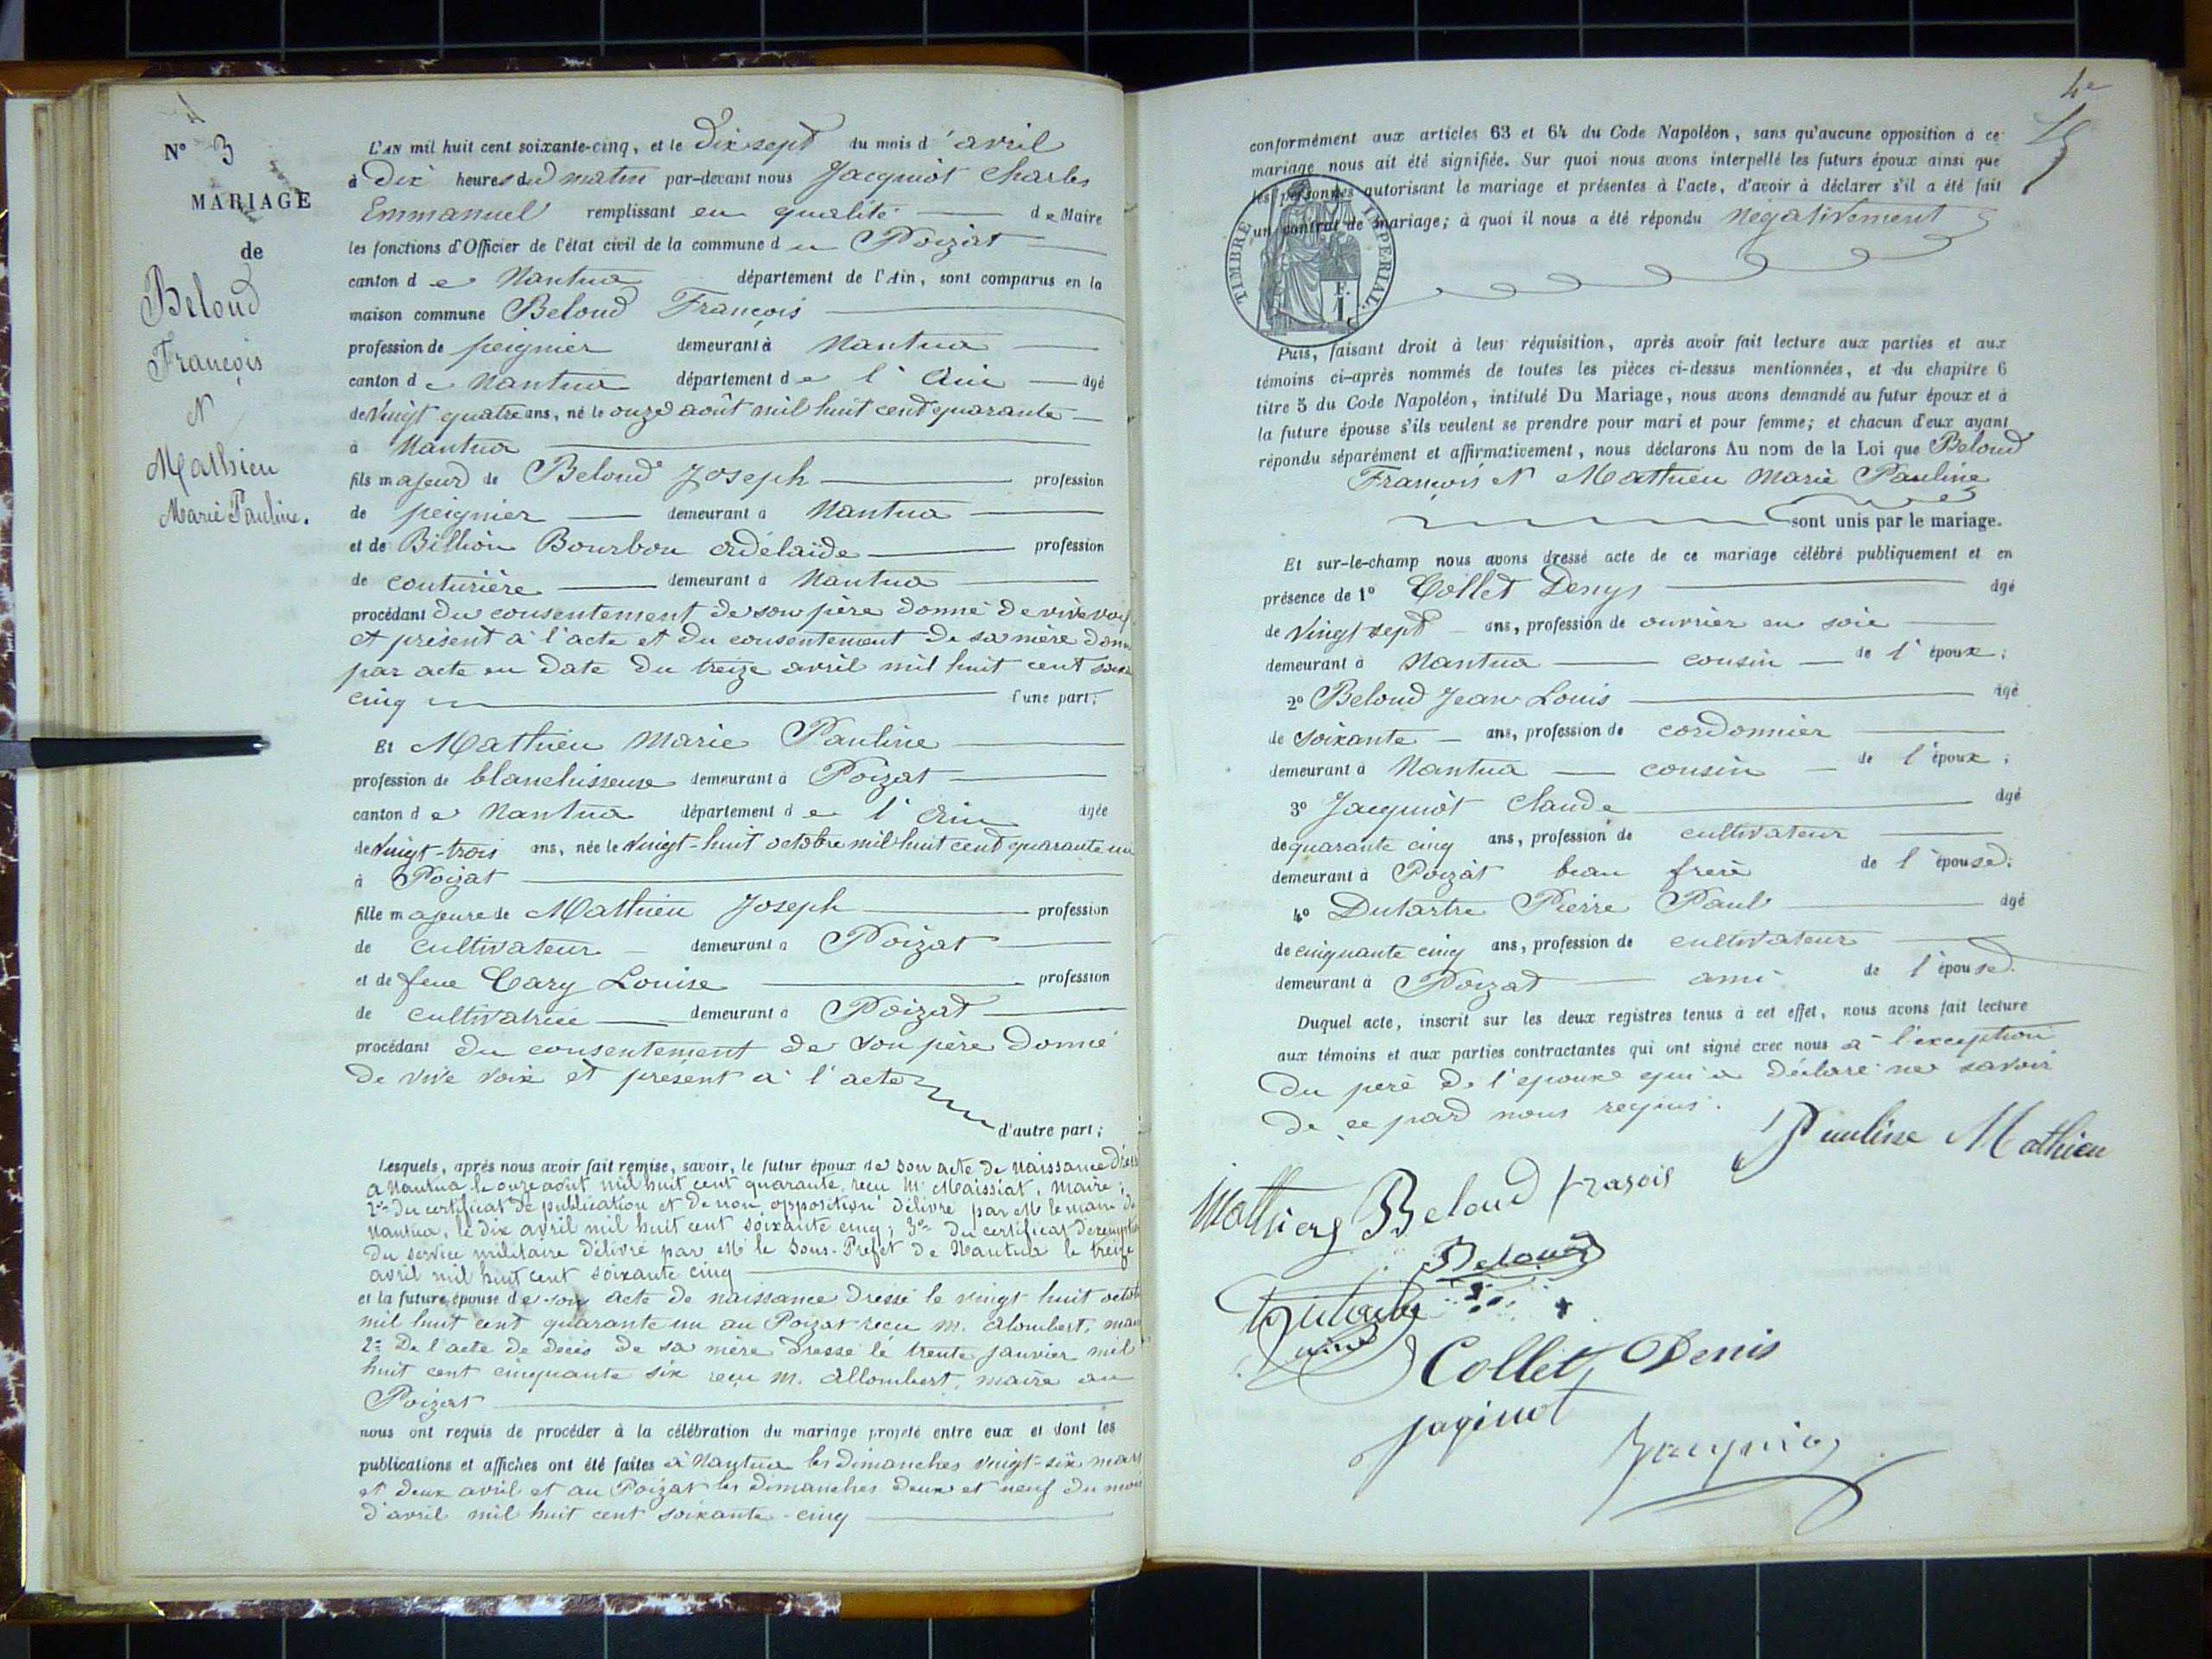 N° 3
MARIAGE
de
Beloud
François
&
Mathieu
Marie Pauline.
L'AN mil huit cent soixante-cinq, et le Dix sept du mois d'avril
à Dix heures du matin par-devant nous Jacquiot Charles
Emmanuel remplissant en qualité de Maire
les fonctions d'Officier de l'état civil de la commune du Poizat
canton de Nantua département de l'Ain, sont comparus en la
maison commune Beloud François
profession de peignier demeurant à Nantua
canton de Nantua département de l'Ain âgé
de vingt quatre ans, né le onze août mil huit cent quarante
à Nantua
fils majeur de Beloud Joseph profession
de peignier demeurant à Nantua
et de Billion Bourbon Adélaïde profession
de couturière demeurant à Nantua
procédant du consentement de son père donné de vive voix
et présent à l'acte et du consentement de sa mère donn
par acte en date du treize avril mil huit cent soixa
cinq d'une part;
Et Mathieu Marie Pauline
profession de blanchisseuse demeurant à Poizat
canton de Nantua département de l'Ain âgée
de vingt-trois ans, née le vingt-huit octobre mil huit cent quarante un
à Poizat
fille majeure de Mathieu Joseph profession
de cultivateur demeurant à Poizat
et de feue Cary Louise profession
de cultivatrice demeurant à Poizat
procédant du consentement de son père donné
de vive voix et présent à l'acte
d'autre part;
Lesquels, après nous avoir fait remise, savoir, le futur époux de son acte de naissance
à Nantua le onze août mil huit cent quarante, reçu Mr Maissiat, Maire;
2° du certificat de publication et de non opposition délivré par M le maire de
Nantua, le dix avril mil huit cent soixante cinq; 3° du certificat d'exemption
du service militaire délivré par M le Sous-Préfet de Nantua le treize
avril mil huit cent soixante cinq
et la future épouse de son acte de naissance dressé le vingt huit octob
mil huit cent quarante un au Poizat reçu M. Alombert, mai
2° De l'acte de décès de sa mère dressé le trente janvier mil
huit cent cinquante six reçu M. Allombert, maire au
Poizat
nous ont requis de procéder à la célébration du mariage projeté entre eux et dont les
publications et affiches ont été faites à Nantua les dimanches vingt-six mars
et deux avril et au Poizat les dimanches deux et neuf du mois
d'avril mil huit cent soixante-cinq
4e
conformément aux articles 63 et 64 du Code Napoléon, sans qu'aucune opposition à ce
mariage nous ait été signifiée. Sur quoi nous avons interpellé les futurs époux ainsi que
les personnes autorisant le mariage et présentes à l'acte, d'avoir à déclarer s'il a été fait
un contrat de mariage; à quoi il nous a été répondu négativement
TIMBRE IMPERIAL.
1 F.
Puis, faisant droit à leur réquisition, après avoir fait lecture aux parties et aux
témoins ci-après nommés de toutes les pièces ci-dessus mentionnées, et du chapitre 6
titre 5 du Code Napoléon, intitulé Du Mariage, nous avons demandé au futur époux et à
la future épouse s'ils veulent se prendre pour mari et pour femme; et chacun d'eux ayant
répondu séparément et affirmativement, nous déclarons Au nom de la Loi que Beloud
François & Mathieu Marie Pauline
sont unis par le mariage.
Et sur-le-champ nous avons dressé acte de ce mariage célébré publiquement et en
présence de 1° Collet Denys âgé
de vingt sept ans, profession de ouvrier en soie
demeurant à Nantua cousin de l'époux;
2° Beloud Jean Louis âgé
de soixante ans, profession de cordonnier
demeurant à Nantua cousin de l'époux;
3° Jacquiot Claude âgé
de quarante cinq ans, profession de cultivateur
demeurant à Poizat beau frère de l'épouse;
4° Dutartre Pierre Paul âgé
de cinquante cinq ans, profession de cultivateur
demeurant à Poizat ami de l'épouse.
Duquel acte, inscrit sur les deux registres tenus à cet effet, nous avons fait lecture
aux témoins et aux parties contractantes qui ont signé avec nous à l'exception
du père de l'époux qui a déclaré ne savoir
de ce par nous requis.
Pauline Mathieu
Beloud
Beloud
Collet Denis
jaqiuot